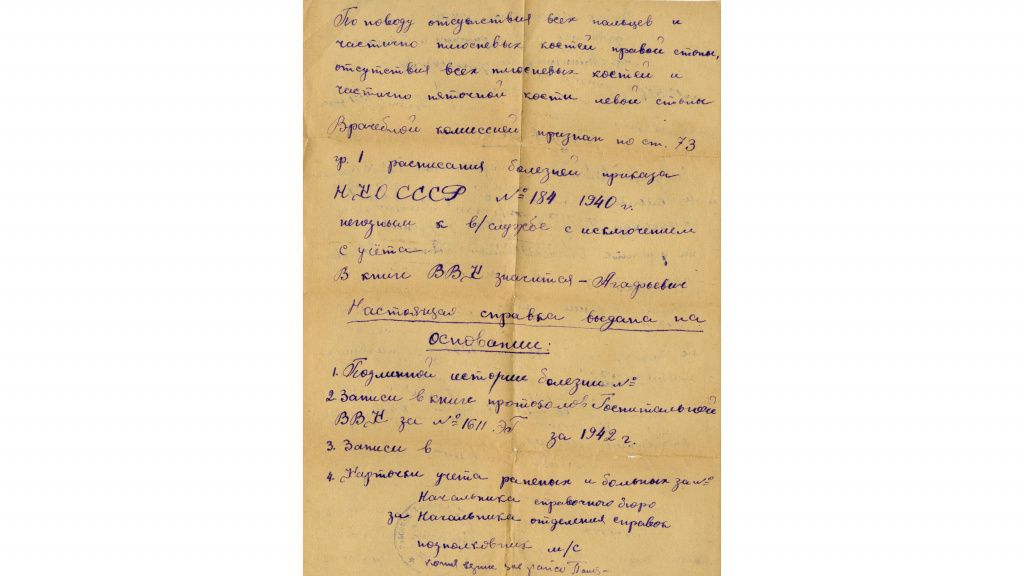 По поводу отсутствия всех пальцев и
частично плюсневых костей правой стопы,
отсутствия всех плюсневых костей и
частично пяточной кости левой стопы
Врачебной комиссией признан по ст. 73
гр. 1 расписания болезней приказа
НКО СССР № 184 1940 г.
негодным к в/службе с исключением
с учёта
В книге ВВК значится – Агафьевич
Настоящая справка выдана на
основании:
1. Подлинной истории болезни №
2 Записи в книге протоколов Госпитальной
ВВК за № 1611. ЭГ за 1942 г.
3. Записи в
4. Карточки учета раненых и больных за №
Начальника справочного бюро
за Начальника отделения справок
подполковник м/с
копия верна